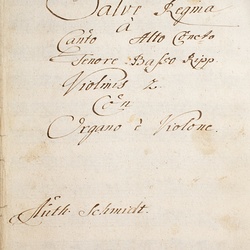 Salve Regina
à
Canto Alto Conc̃to
Tenore Basso Ripp
Violinis 2.
Cõn
Organo è Violone.
Auth. Schmidt.